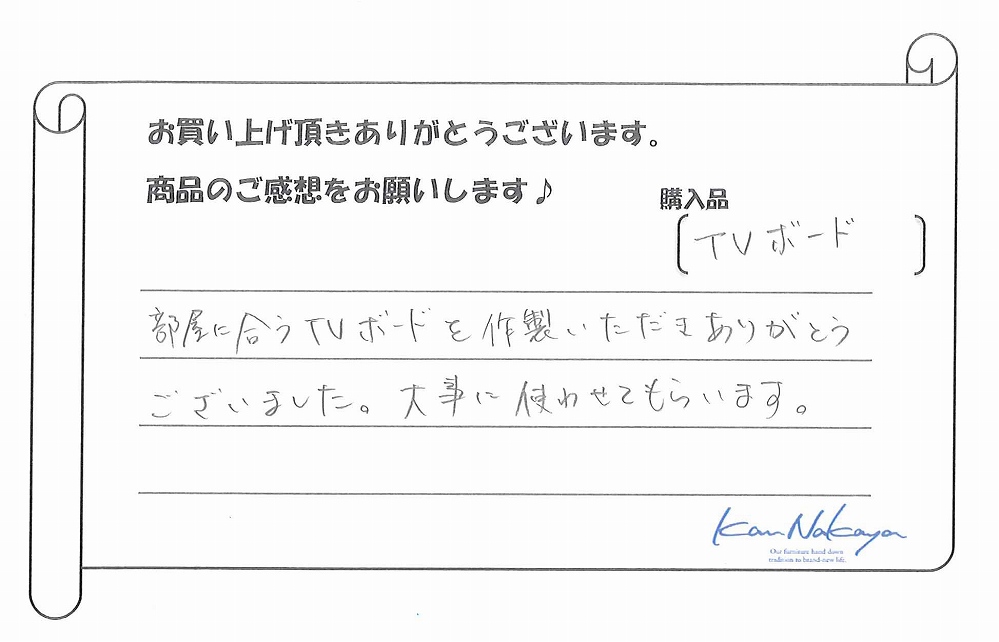 お買い上げ頂きありがとうございます。
商品のご感想をお願いします♪
購入品
TVボード
部屋に合うTVボードを作製いただきありがとう
ございました。大事に使わせてもらいます。
KanNakaya
Our furniture hand down
tradition to brand-new life.